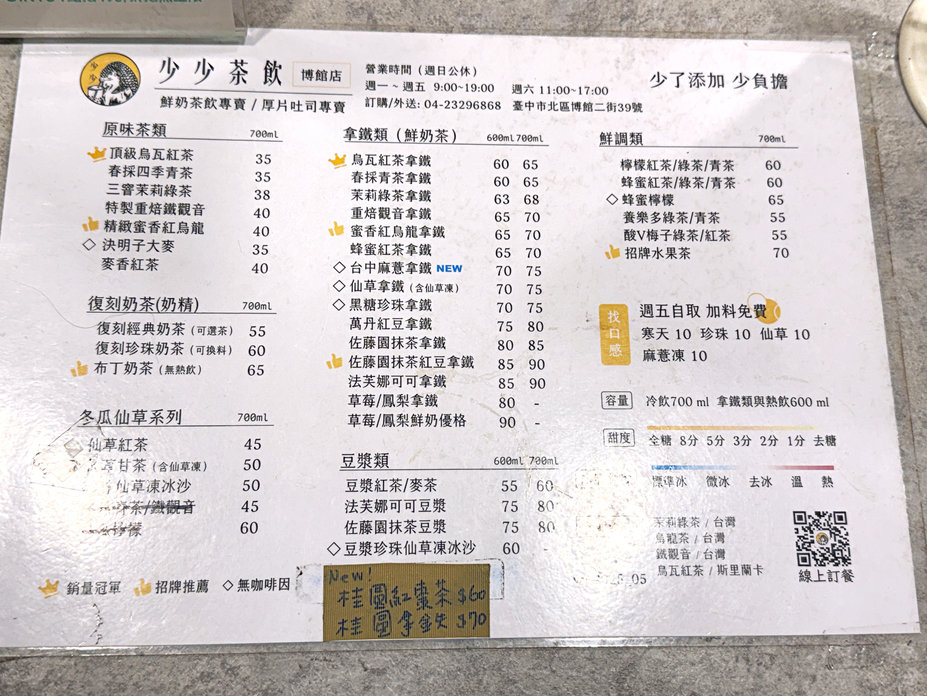 少少茶飲 博館店
鮮奶茶飲專賣 / 厚片吐司專賣
營業時間（週日公休）
週一 ~ 週五 9:00~19:00 週六 11:00~17:00
訂購/外送: 04-23296868 臺中市北區博館二街39號
少了添加 少負擔
原味茶類 700ml
頂級烏瓦紅茶 35
春採四季青茶 35
三窨茉莉綠茶 38
特製重焙鐵觀音 40
精緻蜜香紅烏龍 40
◇ 決明子大麥 35
麥香紅茶 40
復刻奶茶(奶精) 700ml
復刻經典奶茶 (可選茶) 55
復刻珍珠奶茶 (可換料) 60
布丁奶茶 (無熱飲) 65
冬瓜仙草系列 700ml
仙草紅茶 45
甘茶 (含仙草凍) 50
仙草凍冰沙 50
茶/鐵觀音 45
檸檬 60
銷量冠軍 招牌推薦 ◇ 無咖啡因
拿鐵類（鮮奶茶） 600ml 700ml
烏瓦紅茶拿鐵 60 65
春採青茶拿鐵 60 65
茉莉綠茶拿鐵 63 68
重焙觀音拿鐵 65 70
蜜香紅烏龍拿鐵 65 70
蜂蜜紅茶拿鐵 65 70
◇ 台中麻薏拿鐵 NEW 70 75
◇ 仙草拿鐵 (含仙草凍) 70 75
◇ 黑糖珍珠拿鐵 70 75
萬丹紅豆拿鐵 75 80
佐藤園抹茶拿鐵 80 85
佐藤園抹茶紅豆拿鐵 85 90
法芙娜可可拿鐵 85 90
草莓/鳳梨拿鐵 80 -
草莓/鳳梨鮮奶優格 90 -
豆漿類 600ml 700ml
豆漿紅茶/麥茶 55 60
法芙娜可可豆漿 75 80
佐藤園抹茶豆漿 75 80
◇ 豆漿珍珠仙草凍冰沙 60 -
New!
桂圓紅棗茶 $60
桂圓拿鉄 $70
鮮調類 700ml
檸檬紅茶/綠茶/青茶 60
蜂蜜紅茶/綠茶/青茶 60
◇ 蜂蜜檸檬 65
養樂多綠茶/青茶 55
酸V梅子綠茶/紅茶 55
招牌水果茶 70
找口感
週五自取 加料免費
寒天 10 珍珠 10 仙草 10
麻薏凍 10
容量 冷飲700 ml 拿鐵類與熱飲600 ml
甜度 全糖 8分 5分 3分 2分 1分 去糖
標準冰 微冰 去冰 溫 熱
茉莉綠茶 / 台灣
烏龍茶 / 台灣
鐵觀音 / 台灣
烏瓦紅茶 / 斯里蘭卡
線上訂餐